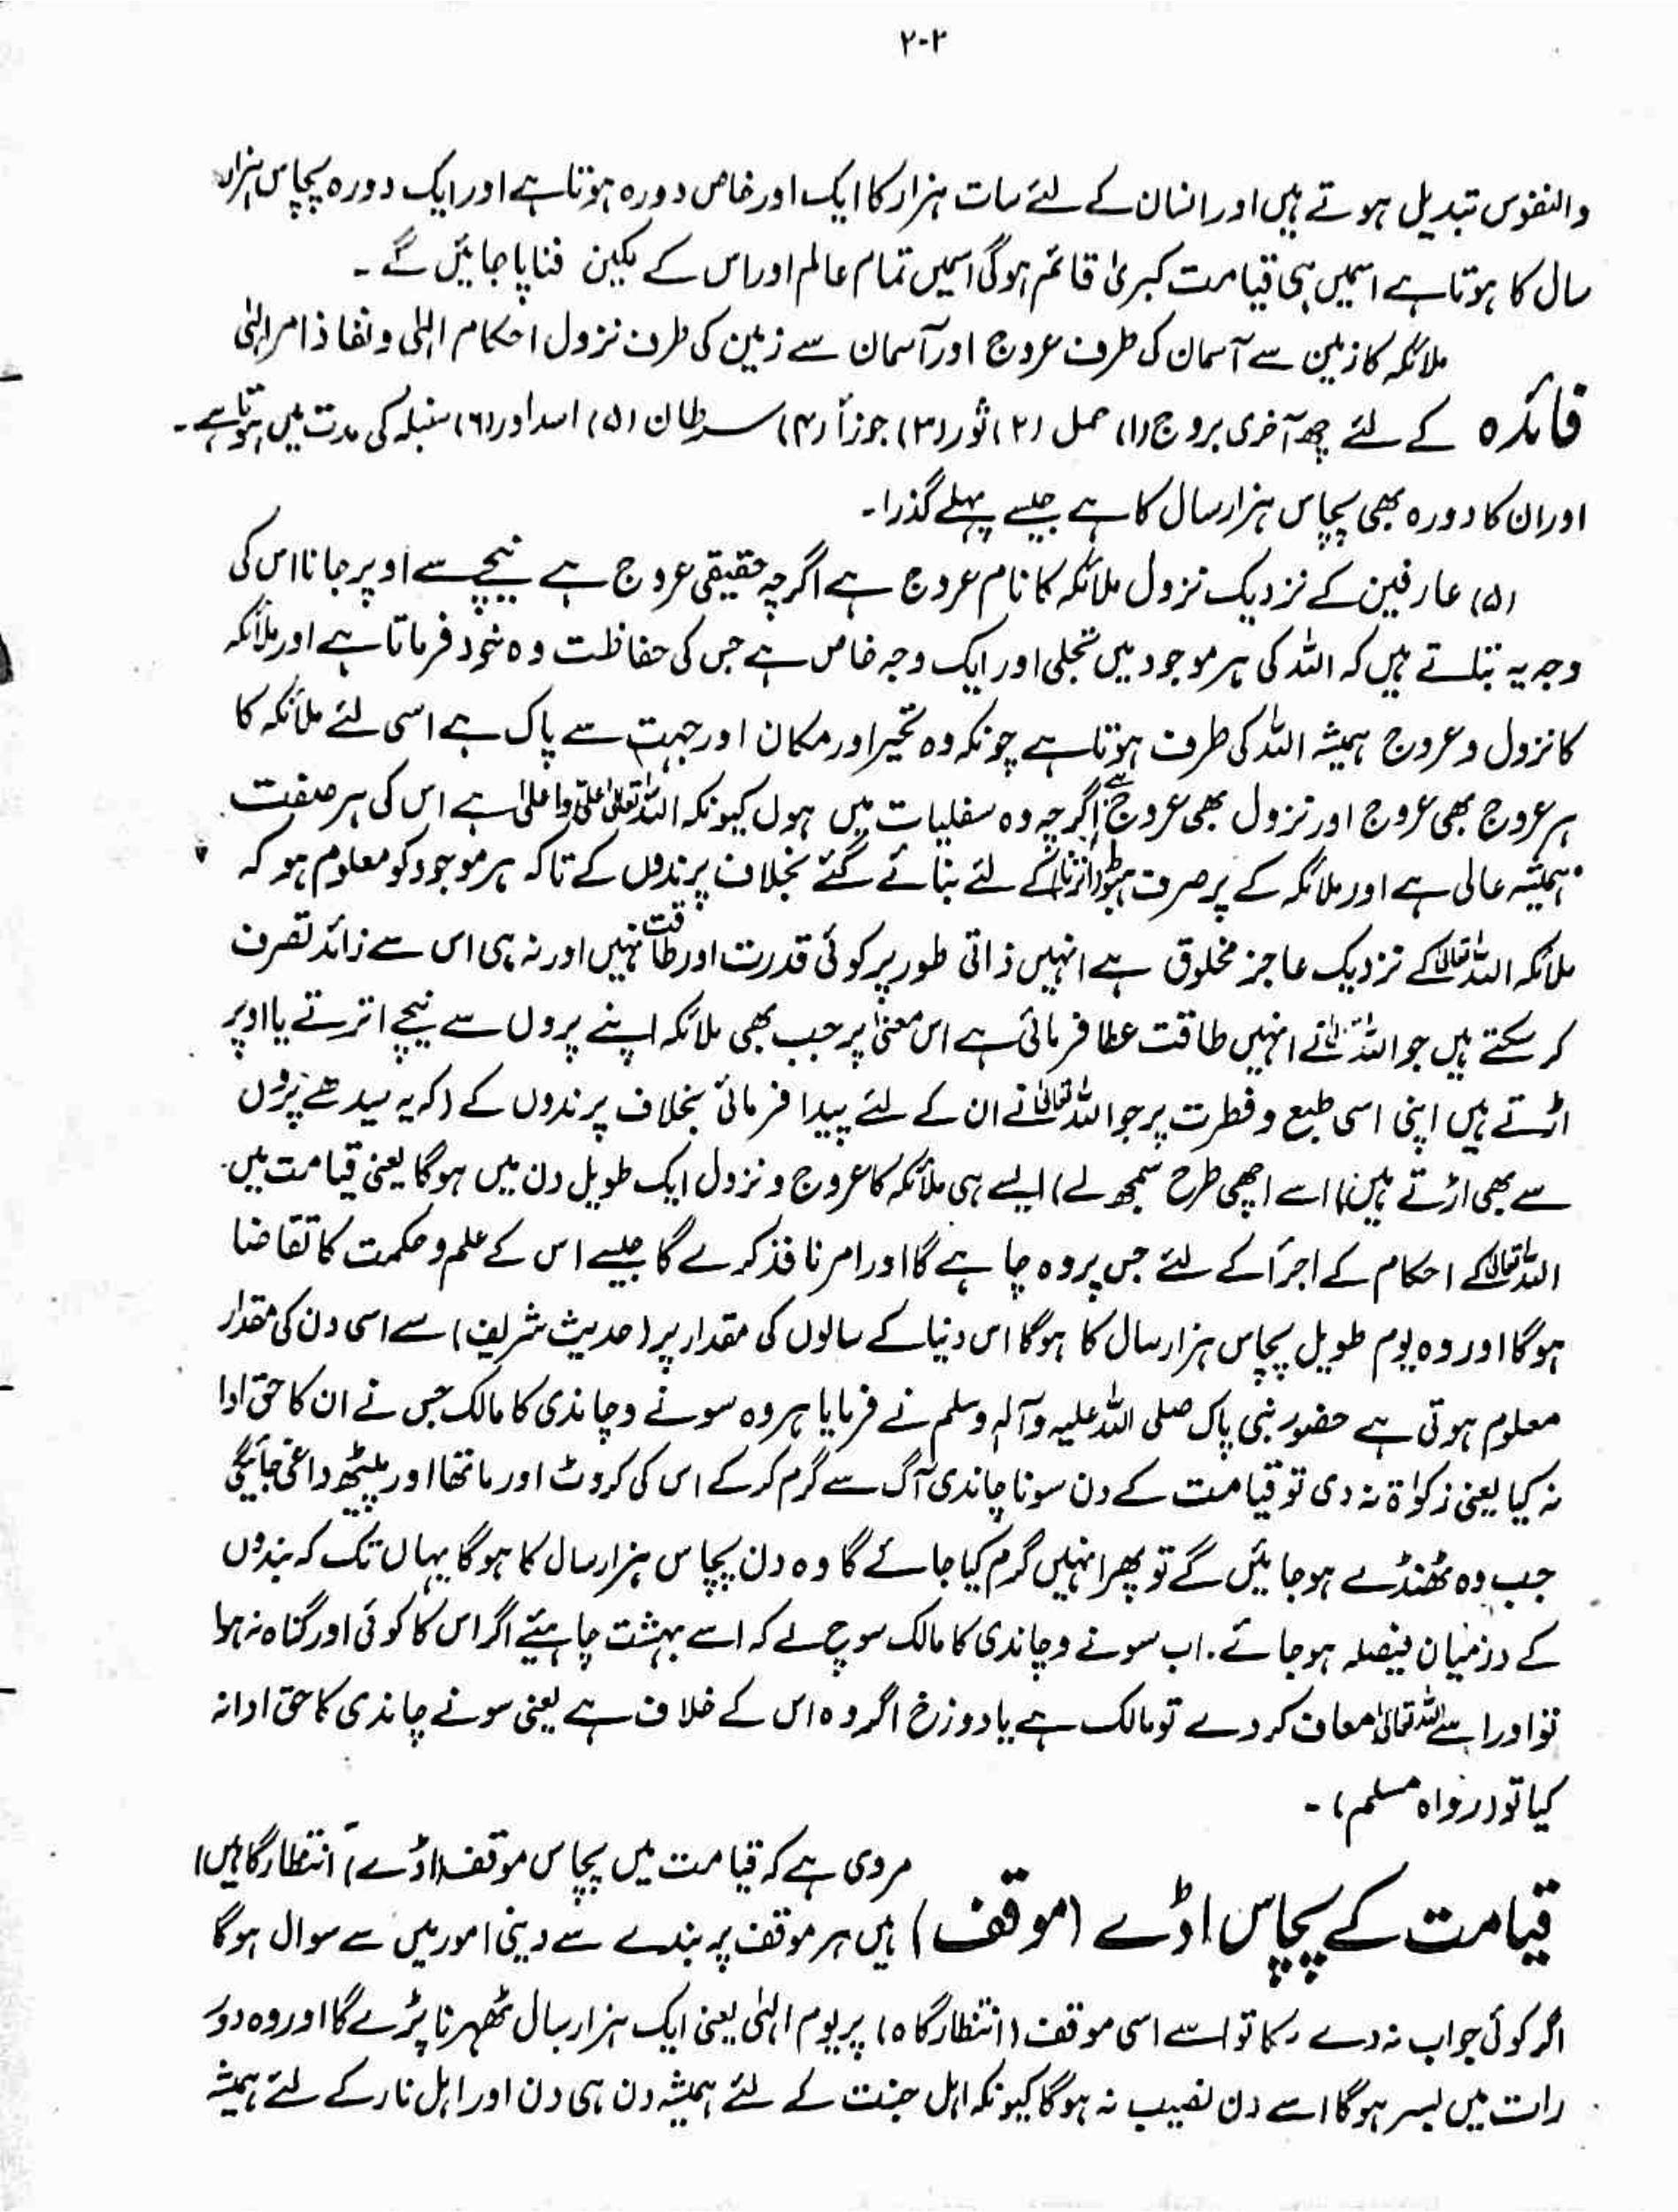 ۲۰۲
والنفوس تبدیل ہوتے ہیں اور انسان کے لئے سات ہزار کا ایک اور خاص دورہ ہوتا ہے اور ایک دورہ پچاس ہزار
سال کا ہوتا ہے اسمیں ہی قیامت کبریٰ قائم ہوگی اسمیں تمام عالم اور اس کے مکین فنا پا جائیں گے ۔
ملائکہ کا زمین سے آسمان کی طرف عروج اور آسمان سے زمین کی طرف نزول احکام الہٰی و نفاذ امر الہٰی
فائدہ کے لئے چھ آخری بروج (۱) حمل (۲) ثور (۳) جوزأ (۴) سرطان (۵) اسد اور (۶) سنبلہ کی مدت میں ہوتا ہے ۔
اور ان کا دورہ بھی پچاس ہزار سال کا ہے جیسے پہلے گذرا ۔
(۵) عارفین کے نزدیک نزول ملائکہ کا نام عروج ہے اگرچہ حقیقی عروج ہے نیچے سے اوپر جانا اس کی
وجہ یہ بتلتے ہیں کہ اللہ کی ہر موجود میں تجلی اور ایک وجہ خاص ہے جس کی حفاظت وہ خود فرماتا ہے اور ملائکہ
کا نزول و عروج ہمیشہ اللہ کی طرف ہوتا ہے چونکہ وہ تحیز اور مکان اور جہت سے پاک ہے اسی لئے ملائکہ کا
ہر عروج بھی عروج اور نزول بھی عروج ہے اگرچہ وہ سفلیات میں ہوں کیونکہ اللہ تعالیٰ علیّ و اعلیٰ ہے اس کی ہر صفت
ہمیشہ عالی ہے اور ملائکہ کے پر صرف ہبوط کے لئے بنائے گئے بخلاف پرندوں کے تاکہ ہر موجود کو معلوم ہو کہ
ملائکہ اللہ تعالیٰ کے نزدیک عاجز مخلوق ہے انہیں ذاتی طور پر کوئی قدرت اور طاقت نہیں اور نہ ہی اس سے زائد تصرف
کر سکتے ہیں جو اللہ نے انہیں طاقت عطا فرمائی ہے اس معنیٰ پر جب بھی ملائکہ اپنے پروں سے نیچے اترتے یا اوپر
اڑتے ہیں اپنی اسی طبع و فطرت پر جو اللہ تعالیٰ نے ان کے لئے پیدا فرمائی بخلاف پرندوں کے (کہ یہ سیدھے پروں
سے بھی اڑتے ہیں) (اسے اچھی طرح سمجھ لے) ایسے ہی ملائکہ کا عروج و نزول ایک طویل دن میں ہوگا یعنی قیامت میں
اللہ تعالیٰ کے احکام کے اجرأ کے لئے جس پر وہ چاہے گا اور امر نافذ کرے گا جیسے اس کے علم و حکمت کا تقاضا
ہوگا اور وہ یوم طویل پچاس ہزار سال کا ہوگا اس دنیا کے سالوں کی مقدار پر (حدیث شریف) سے اسی دن کی مقدار
معلوم ہوتی ہے حضور نبی پاک صلی اللہ علیہ وآلہ وسلم نے فرمایا ہر وہ سونے و چاندی کا مالک جس نے ان کا حق ادا
نہ کیا یعنی زکوٰۃ نہ دی تو قیامت کے دن سونا چاندی آگ سے گرم کر کے اس کی کروٹ اور ماتھا اور پیٹھ داغی جائیگی
جب وہ ٹھنڈے ہو جائیں گے تو پھر انہیں گرم کیا جائے گا وہ دن پچاس ہزار سال کا ہوگا یہاں تک کہ بندوں
کے درمیان فیصلہ ہو جائے. اب سونے و چاندی کا مالک سوچ لے کہ اسے بہشت چاہیئے اگر اس کا کوئی اور گناہ نہ ہوا
تو اور اسے اللہ تعالیٰ معاف کر دے تو مالک ہے یا دوزخ اگر وہ اس کے خلاف ہے یعنی سونے چاندی کا حق ادا نہ
کیا تو (رواہ مسلم) ۔
مروی ہے کہ قیامت میں پچاس موقف (اڈے) (انتظار گاہیں)
قیامت کے پچاس اڈے (موقف) ہیں ہر موقف پر بندے سے دینی امور میں سے سوال ہوگا
اگر کوئی جواب نہ دے سکا تو اسے اسی موقف (انتظار گاہ) پر یوم الہٰی یعنی ایک ہزار سال ٹھہرنا پڑے گا اور وہ دور
رات میں بسر ہوگا اسے دن نصیب نہ ہوگا کیونکہ اہل جنت کے لئے ہمیشہ دن ہی دن اور اہل نار کے لئے ہمیشہ